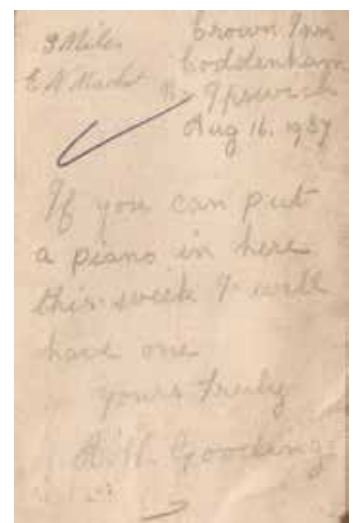 3 Miles
Crown Inn
Coddenham
Ipswich
Aug 16. 1937
If you can put
a piano in here
this week I will
have one
yours truly
Gooding